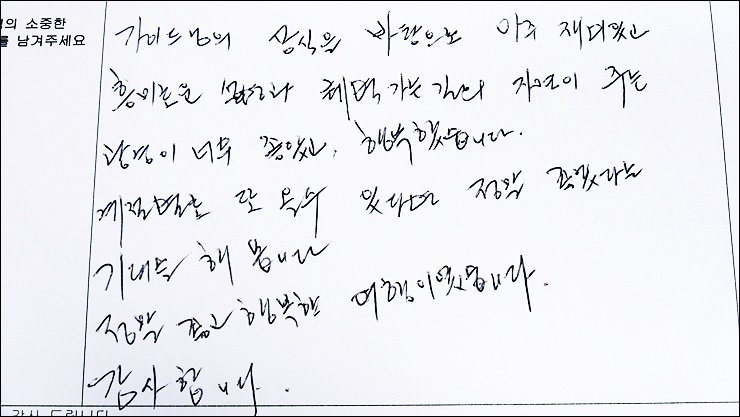 의 소중한
를 남겨주세요
가이드님의 상식을 바탕으로 아주 재미있고
흥미로운 설명과 헤쳐가는 길의 자연이 주는
환경이 너무 좋았고, 행복했습니다.
계절별로 또 올수 있다면 정말 좋겠다는
기대를 해 봅니다
정말 좋고 행복한 여행이였습니다.
감사합니다.
감사 드립니다